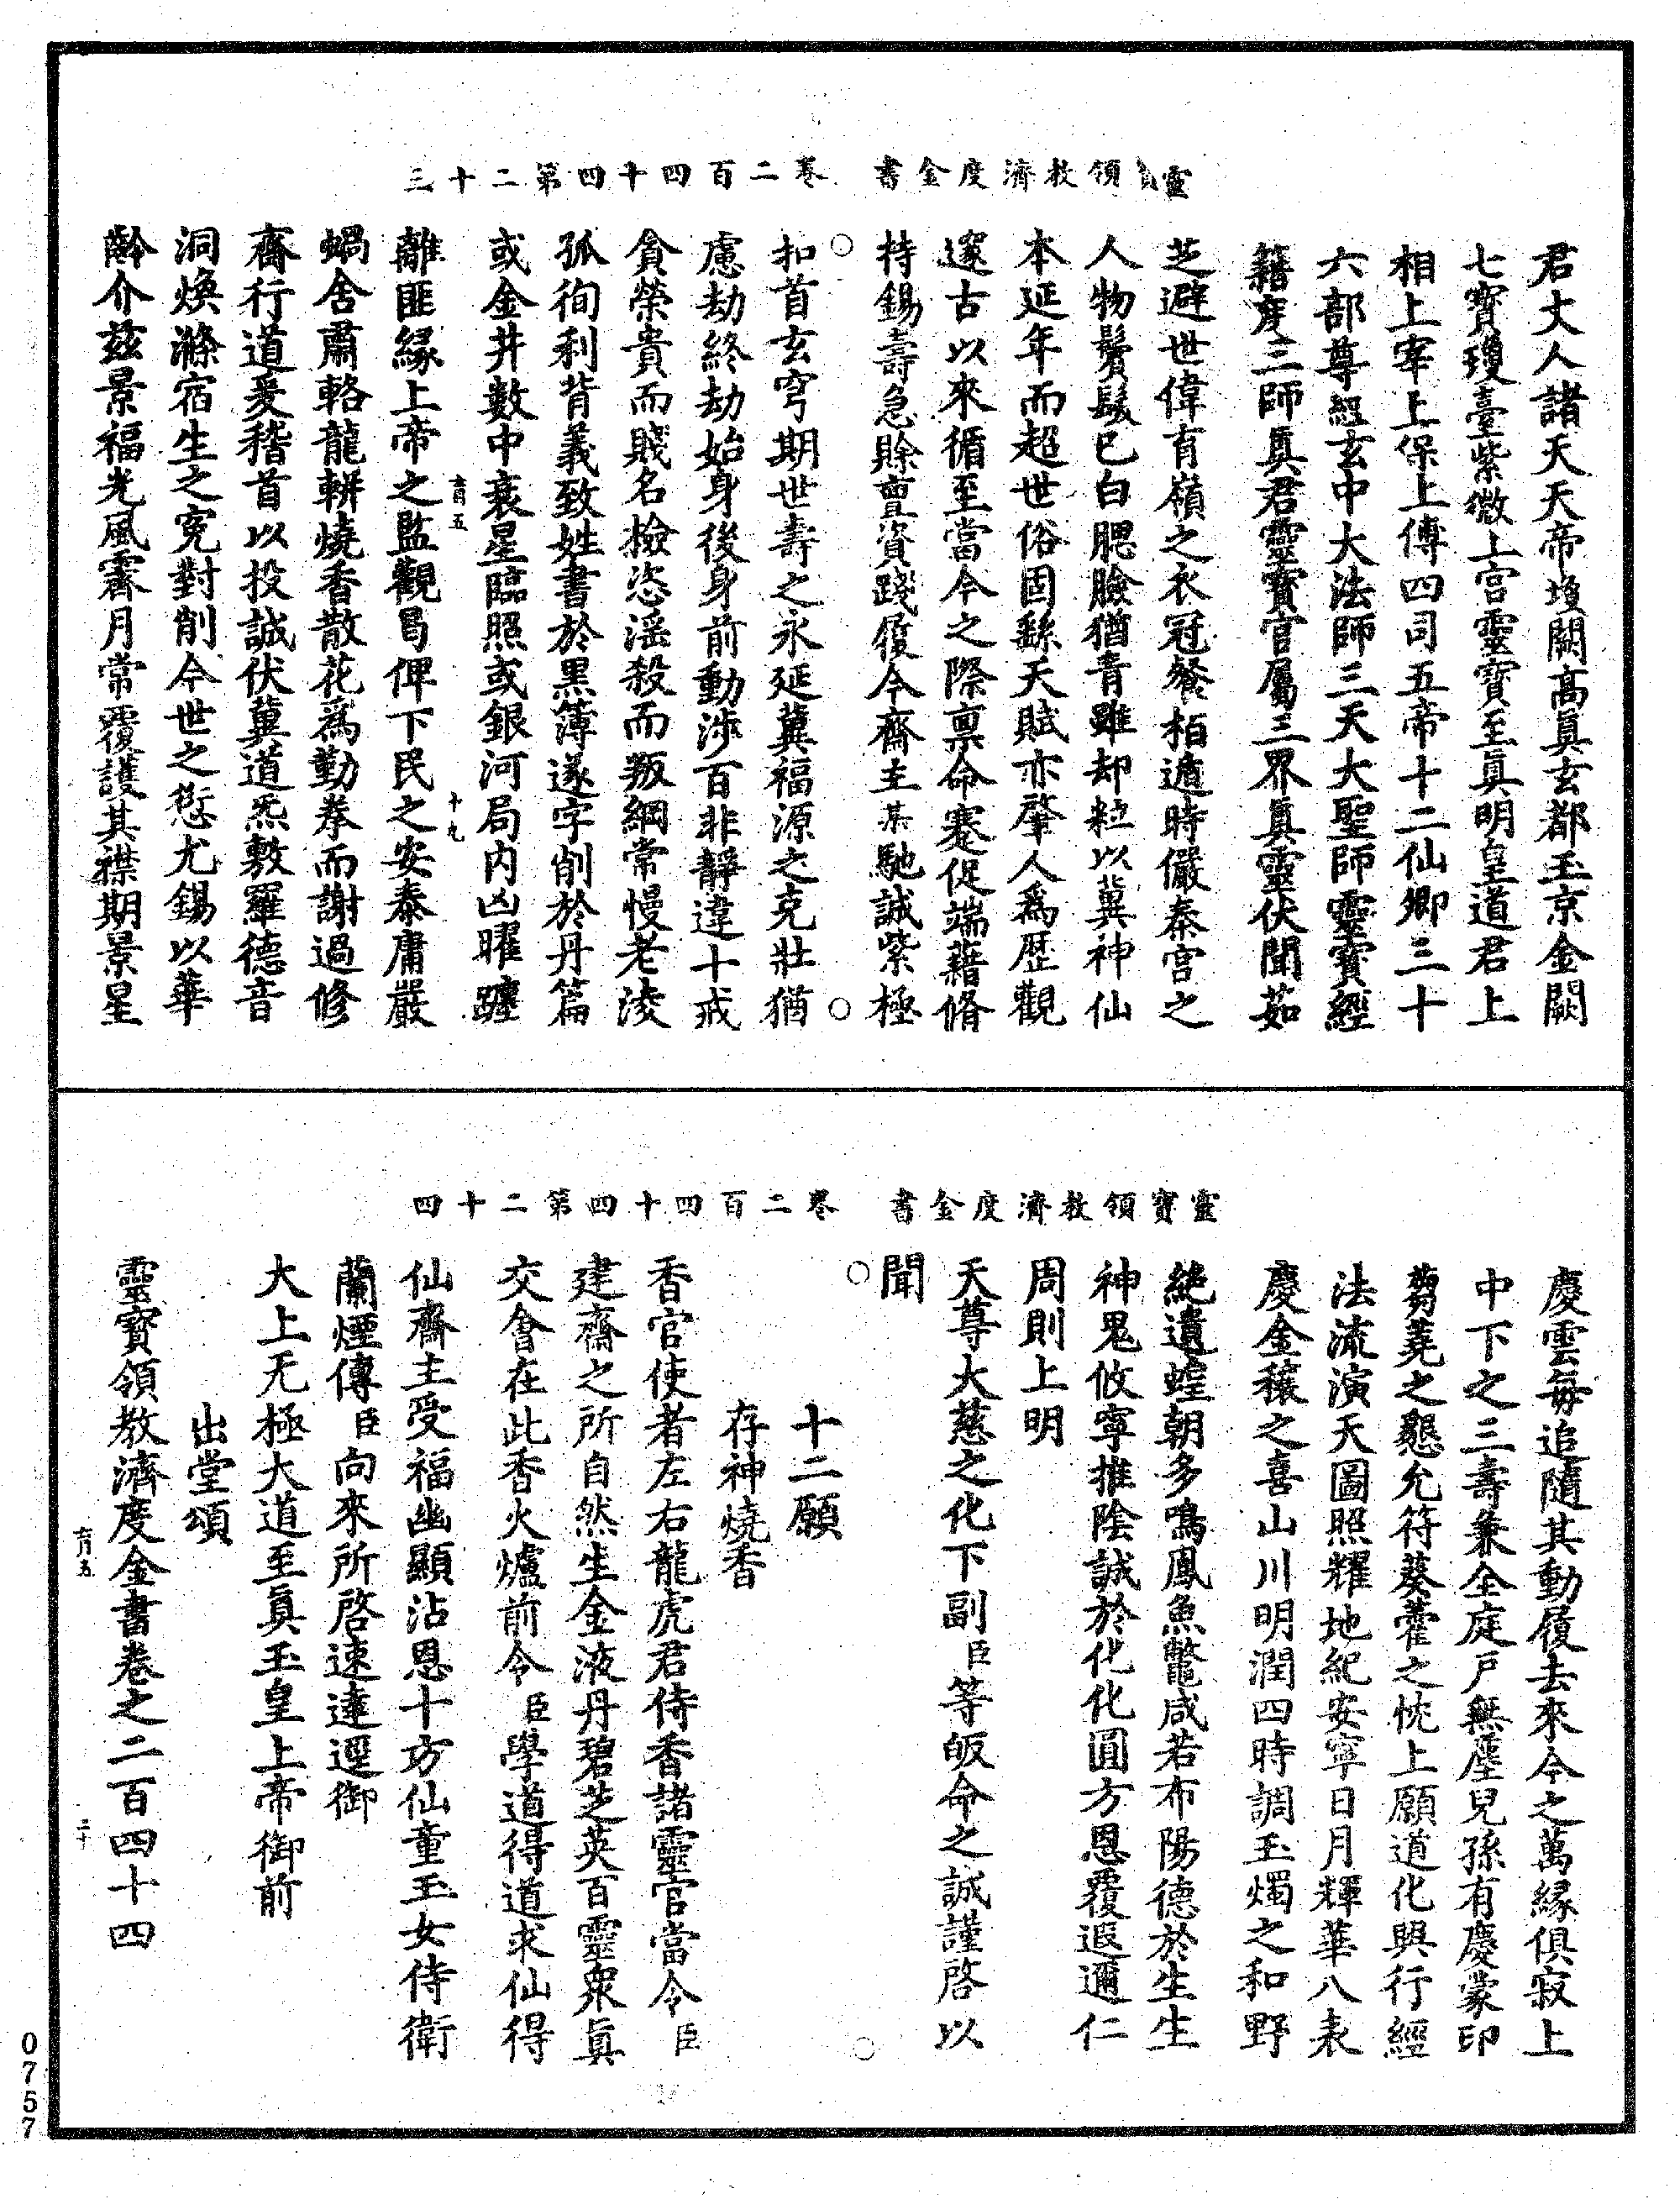 靈寶領教濟度金書　卷二百四十四第二十三
君丈人諸天天帝墉闕高眞玄都玉京金闕
七寶瓊臺紫微上宫靈寶至眞明皇道君上
相上宰上保上傅四司五帝十二仙卿三十
六部尊經玄中大法師三天大聖師靈寶經
籍度三師眞君靈寶官屬三界眞靈伏聞茹
芝避世偉有嶺之衣冠餐柏遁時儼秦宫之
人物鬢髮已白腮臉猶青雖却粒以冀神仙
本延年而超世俗固繇天賦亦肇人爲歷觀
邃古以來循至當今之際禀命蹇促端藉脩
持錫壽急賒亶資踐履今齋主某馳誠紫極
扣首玄穹期世壽之永延冀福源之克壯猶
慮劫終劫始身後身前動涉百非靜違十戒
貪榮貴而賤名檢恣淫殺而叛綱常慢老淩
孤徇利背義致姓書於黑簿遂字削於丹篇
或金井數中衰星臨照或銀河局内凶曜躔
離匪緣上帝之監觀曷俾下民之安泰庸嚴
育五
十九
蝸舍肅輅龍軿燒香散花爲勤拳而謝過修
齋行道爰稽首以投誠伏冀道炁敷羅德音
洞煥滌宿生之寃對削今世之愆尤錫以華
齡介兹景福光風霽月常覆護其襟期景星
靈寶領教濟度金書　卷二百四十四第二十四
慶雲每追隨其動履去來今之萬緣俱寂上
中下之三壽兼全庭戸無塵兒孫有慶蒙印
蒭蕘之懇允符葵藿之忱上願道化興行經
法流演天圖照耀地紀安寧日月輝華八表
慶金穰之喜山川明潤四時調玉燭之和野
絶遺蝗朝多鳴鳳魚鼈咸若布陽德於生生
神鬼攸寧推陰誠於化化圓方恩覆遐邇仁
周則上明
天尊大慈之化下副臣等皈命之誠謹啓以
聞
十二願
存神燒香
香官使者左右龍虎君侍香諸靈官當令臣
建齋之所自然生金液丹碧芝英百靈衆眞
交會在此香火爐前令臣學道得道求仙得
仙齋主受福幽顯沾恩十方仙童玉女侍衛
蘭煙傳臣向來所啓速達逕御
大上无極大道至眞玉皇上帝御前
出堂頌
靈寶領教濟度金書卷之二百四十四
育五
二十
0757